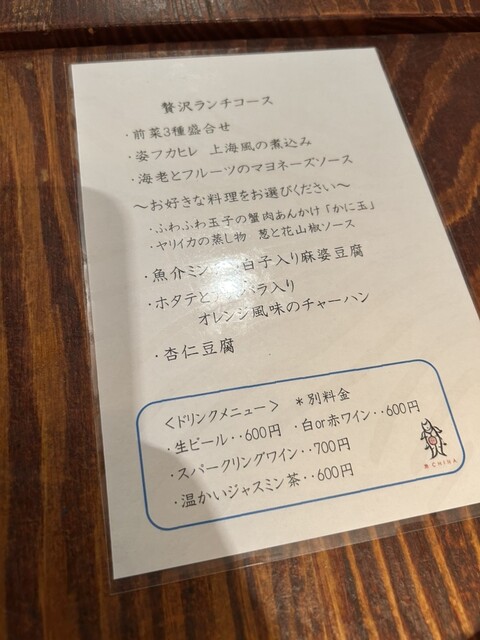 贅沢ランチコース
・前菜3種盛合せ
・姿フカヒレ 上海風の煮込み
・海老とフルーツのマヨネーズソース
〜お好きな料理をお選びください〜
・ふわふわ玉子の蟹肉あんかけ「かに玉」
・ヤリイカの蒸し物 葱と花山椒ソース
・魚介ミン 白子入り麻婆豆腐
・ホタテと バラ入り
オレンジ風味のチャーハン
・杏仁豆腐
＜ドリンクメニュー＞ ＊別料金
・生ビール・・600円 ・白or赤ワイン・・600円
・スパークリングワイン・・700円
・温かいジャスミン茶・・600円
CHINA